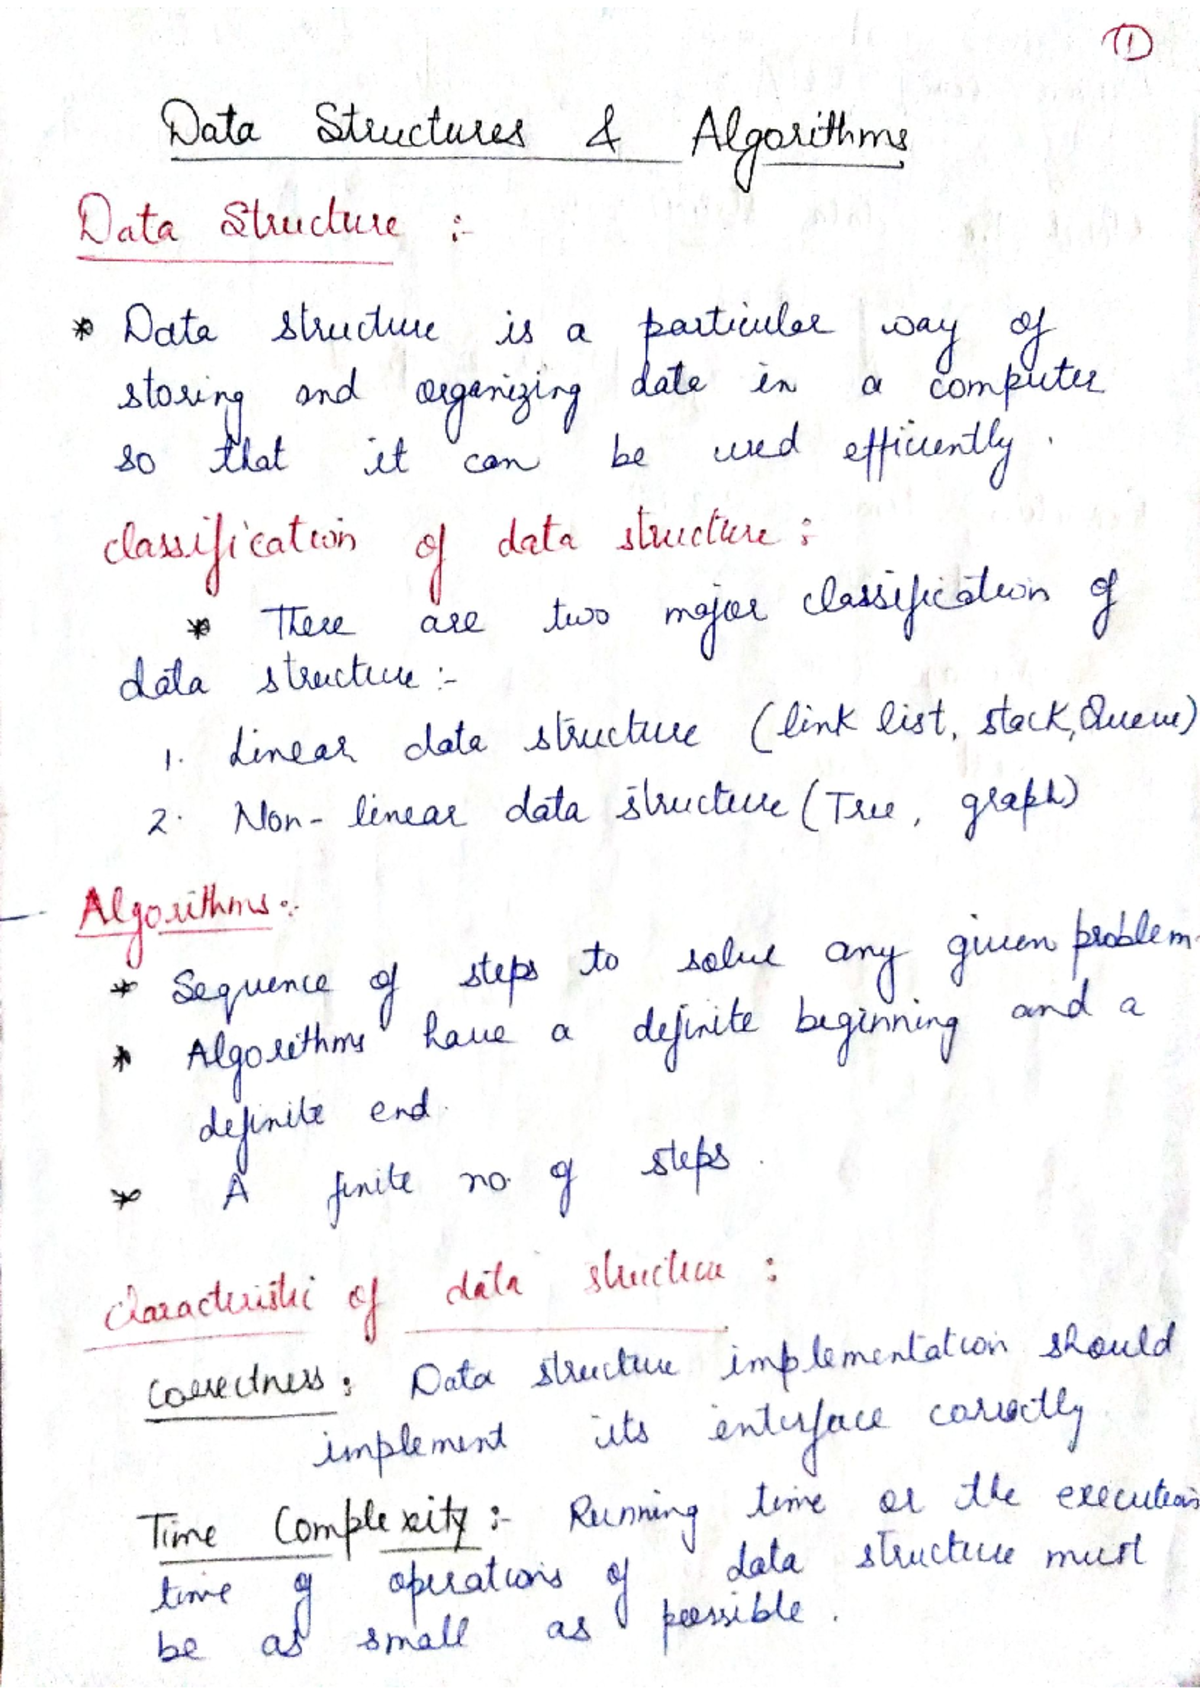 1
Data Structures & Algorithms
Data Structure :-
* Data structure is a particular way of
storing and organizing data in a computer
so that it can be used efficiently.
classification of data structure :
* There are two major classification of
data structure :-
1. Linear data structure (link list, stack, Queue)
2. Non-linear data structure (Tree, graph)
Algorithms :-
* Sequence of steps to solve any given problem.
* Algorithms have a definite beginning and a
definite end.
* A finite no. of steps.
characteristic of data structure :
correctness : Data structure implementation should
implement its interface correctly
Time Complexity :- Running time or the execution
time of operations of data structure must
be as small as possible.